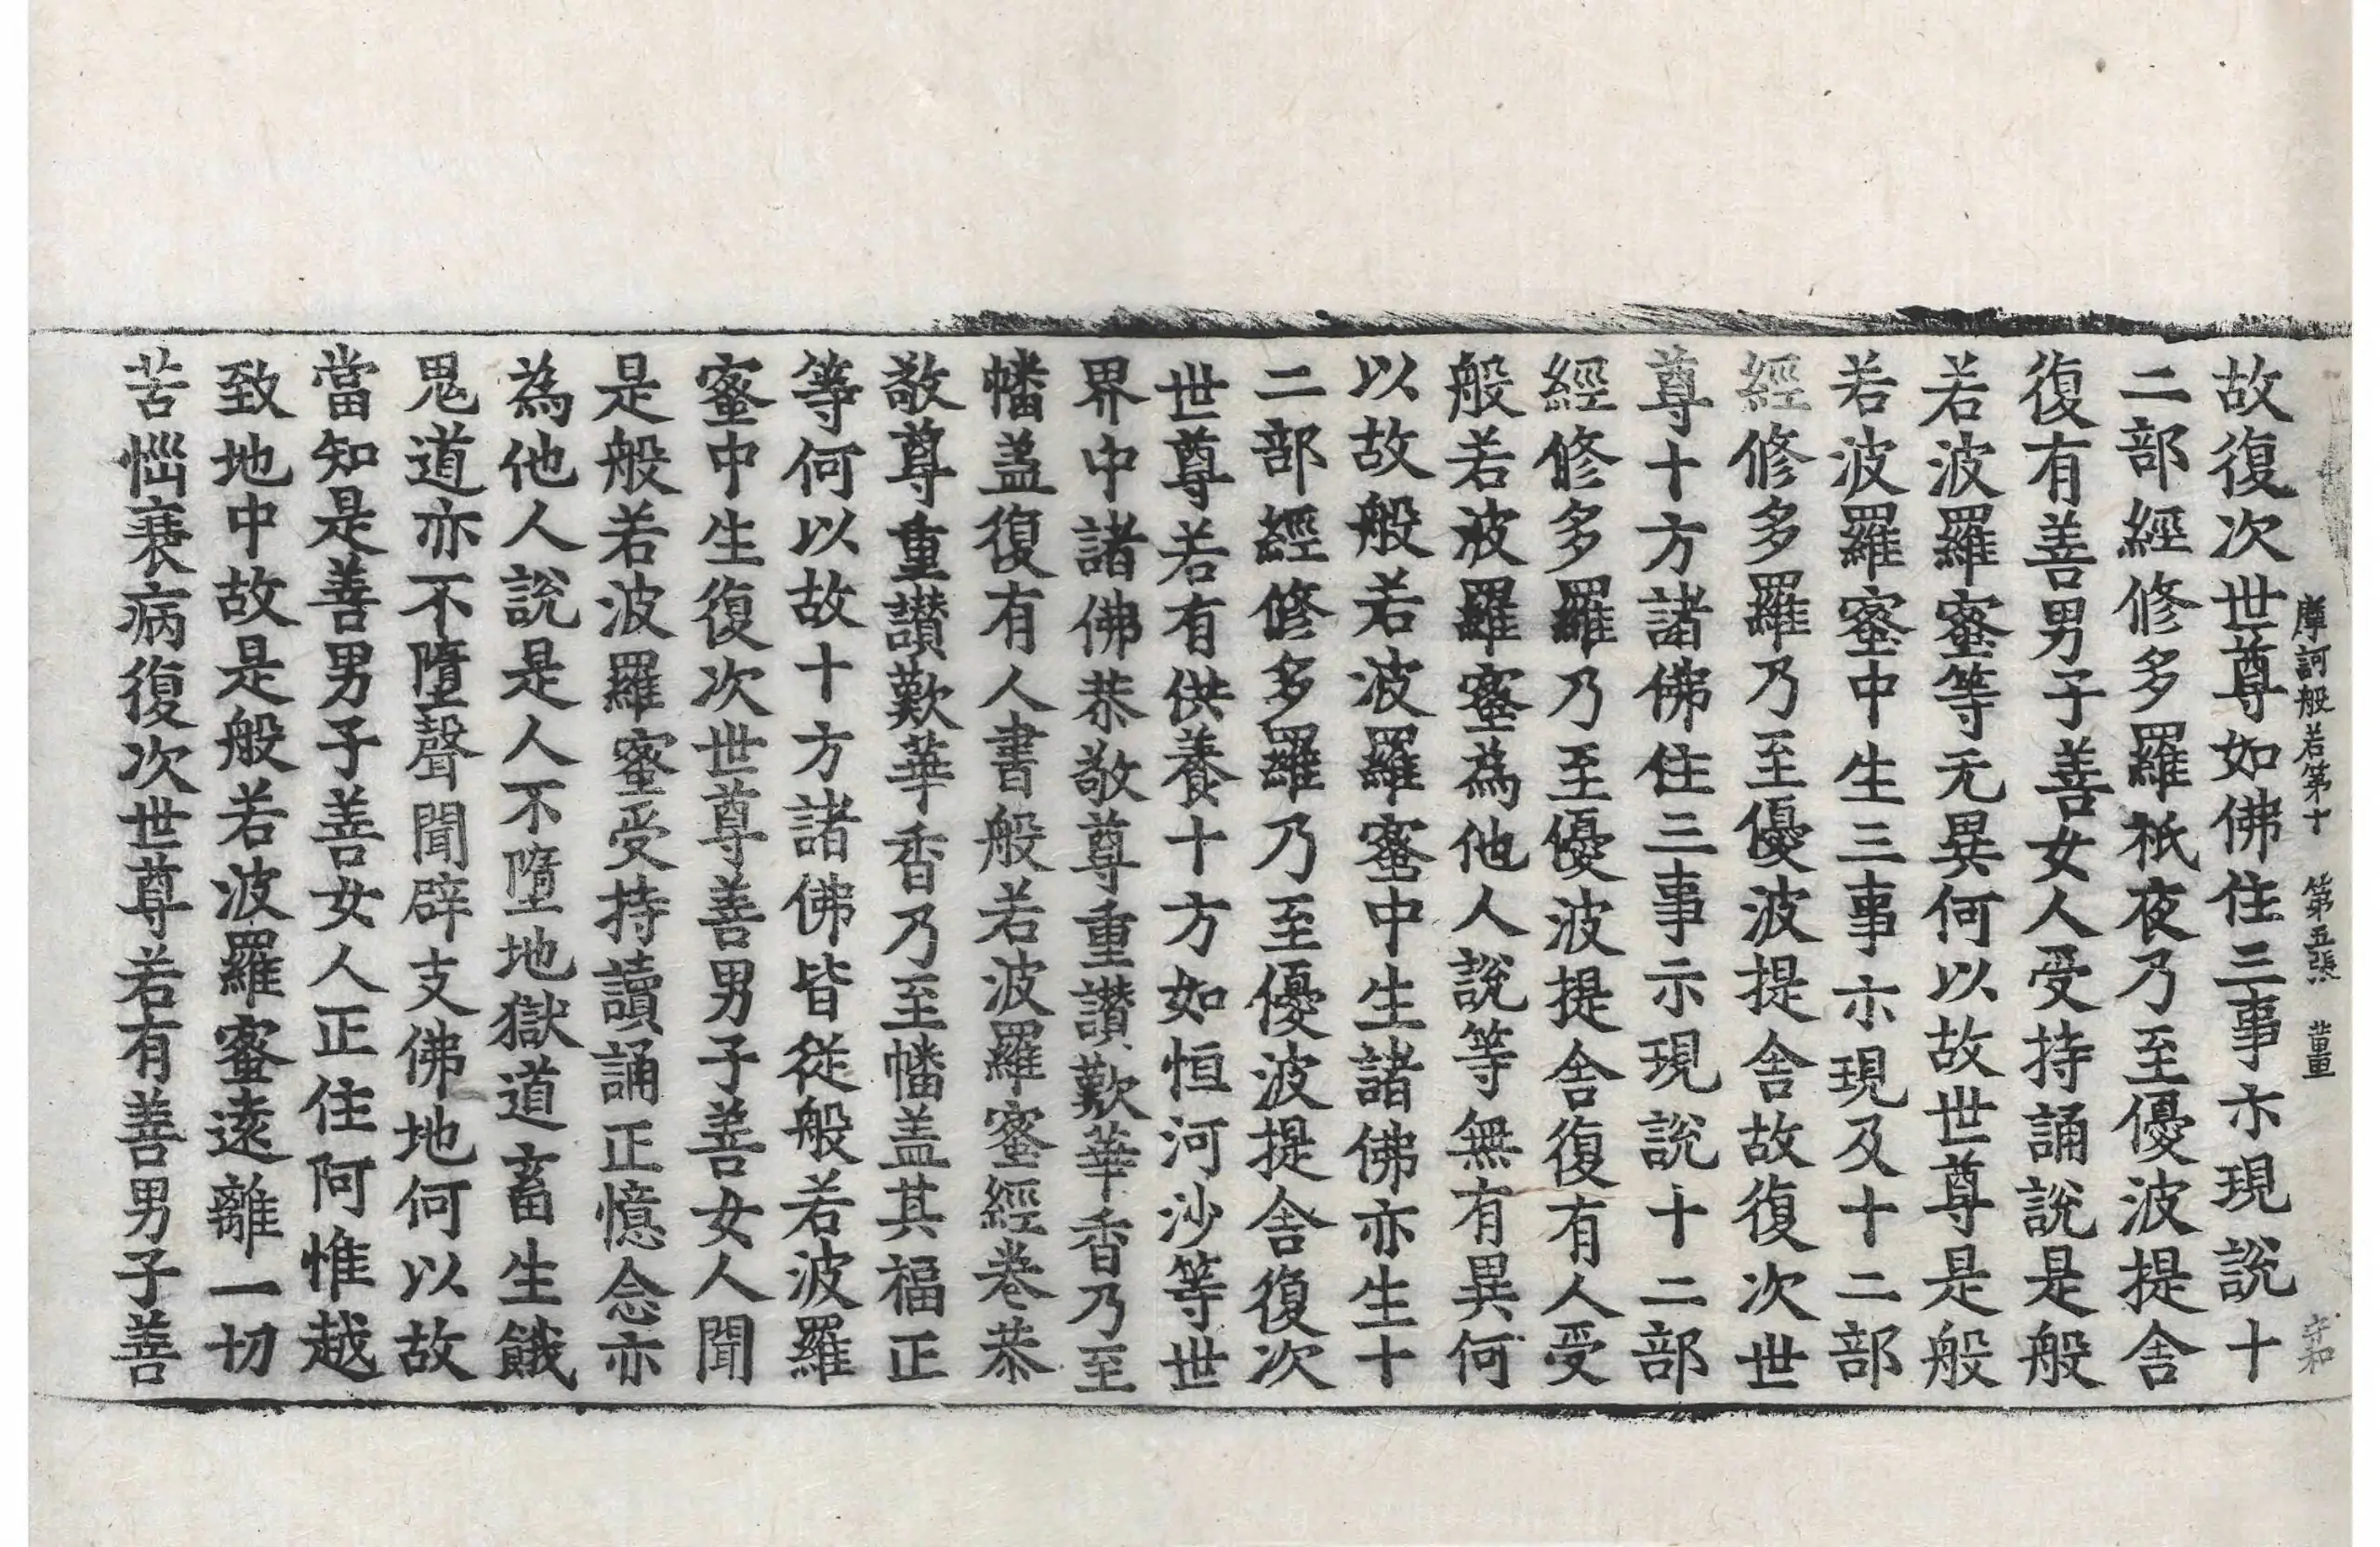 摩訶般若第十　第五張　董　守和
故復次世尊如佛住三事示現說十
二部經修多羅祇夜乃至優波提舍
復有善男子善女人受持誦說是般
若波羅蜜等无異何以故世尊是般
若波羅蜜中生三事示現及十二部
經修多羅乃至優波提舍故復次世
尊十方諸佛住三事示現說十二部
經修多羅乃至優波提舍復有人受
般若波羅蜜為他人說等無有異何
以故般若波羅蜜中生諸佛亦生十
二部經修多羅乃至優波提舍復次
世尊若有供養十方如恒河沙等世
界中諸佛恭敬尊重讃歎華香乃至
幡盖復有人書般若波羅蜜經卷恭
敬尊重讃歎華香乃至幡盖其福正
等何以故十方諸佛皆從般若波羅
蜜中生復次世尊善男子善女人聞
是般若波羅蜜受持讀誦正憶念亦
為他人說是人不墮地獄道畜生餓
鬼道亦不墮聲聞辟支佛地何以故
當知是善男子善女人正住阿惟越
致地中故是般若波羅蜜遠離一切
苦惱衰病復次世尊若有善男子善